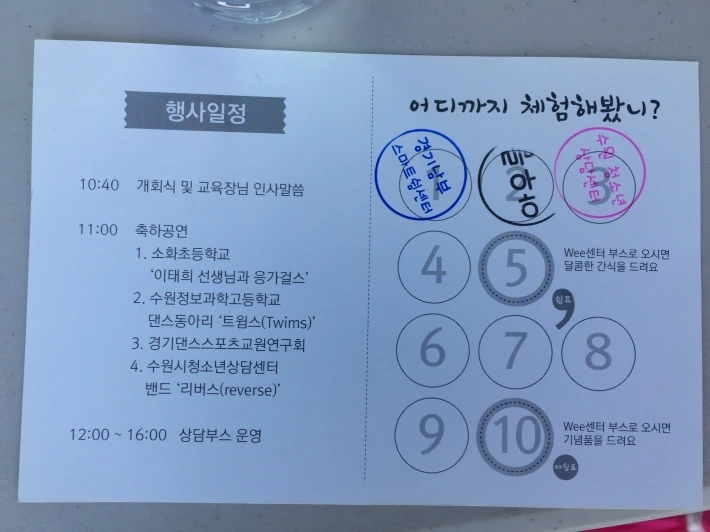 행사일정
10:40 개회식 및 교육장님 인사말씀
11:00 축하공연
1. 소화초등학교
‘이태희 선생님과 응가걸스’
2. 수원정보과학고등학교
댄스동아리 ‘트윔스(Twims)’
3. 경기댄스스포츠교원연구회
4. 수원시청소년상담센터
밴드 ‘리버스(reverse)’
12:00 ~ 16:00 상담부스 운영
어디까지 체험해봤니?
경기남부
스마트쉼센터
1
2
수원 청소년
상담센터
3
4
5
Wee센터 부스로 오시면
달콤한 간식을 드려요
쉼표
6
7
8
9
10
Wee센터 부스로 오시면
기념품을 드려요
마침표